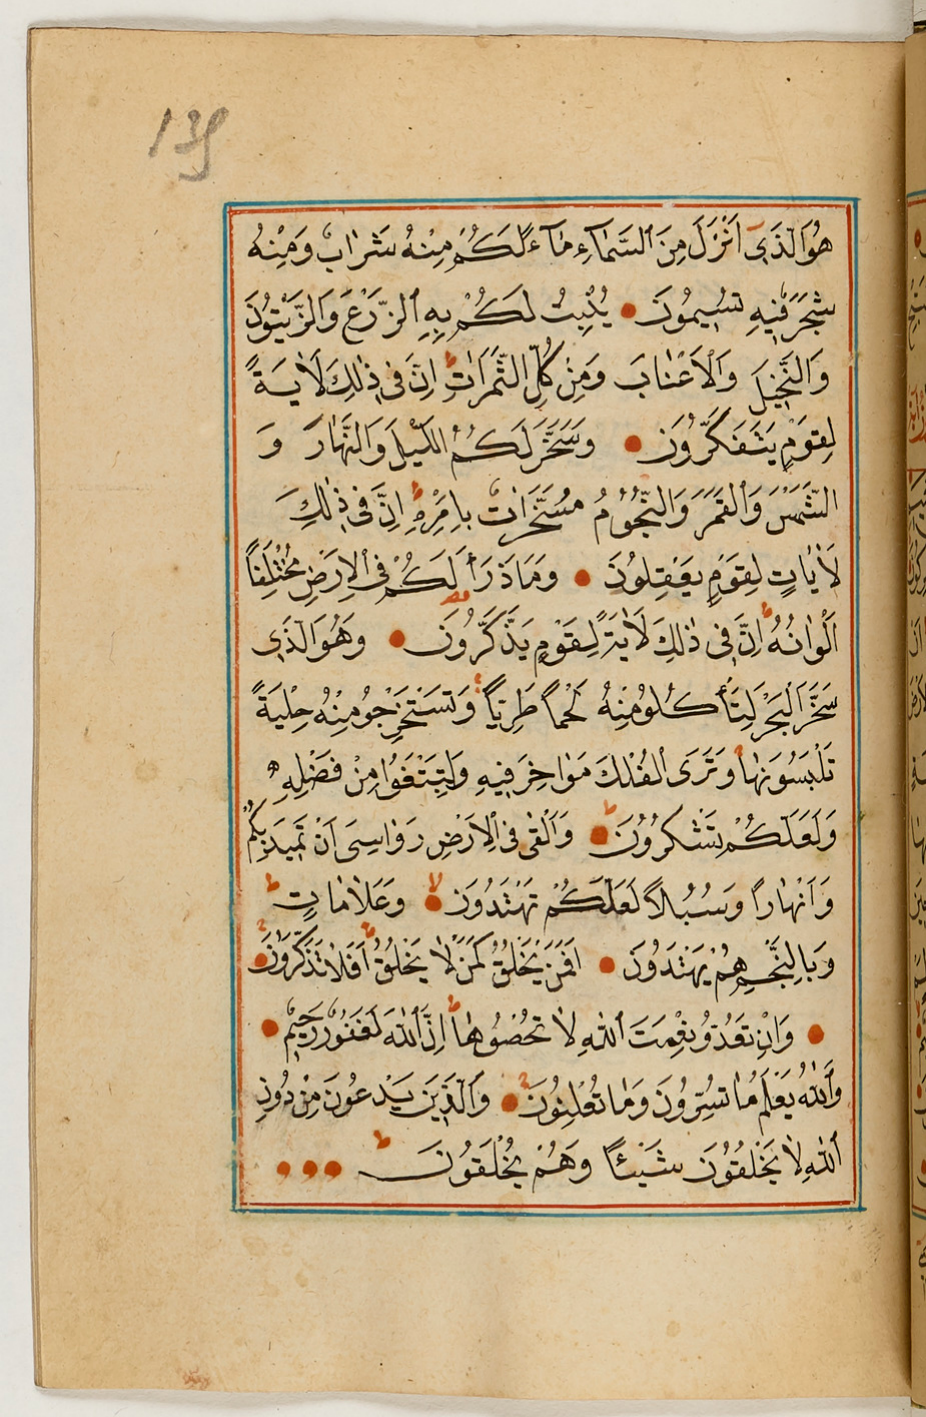 139
هُوَ الَّذَى اَنْزَلَ مِنَ السَّمَاءِ مَاءً لَكُمْ مِنْهُ شَرَابٌ وَمِنْهُ
شَجَرٌ فِيهِ تُسِيمُونَ يُنْبِتُ لَكُمْ بِهِ الزَّرْعَ وَالزَّيْتُونَ
وَالنَّخِيلَ وَالْاَعْنَابَ وَمِنْ كُلِّ الثَّمَرَاتِ ط اِنَّ فِى ذٰلِكَ لَاٰيَةً
لِقَوْمٍ يَتَفَكَّرُونَ وَسَخَّرَ لَكُمُ الَّيْلَ وَالنَّهَارَ وَ
الشَّمْسَ وَالْقَمَرَ وَالنُّجُومُ مُسَخَّرَاتٌ بِاَمْرِهِ ط اِنَّ فِى ذٰلِكَ
لَاٰيَاتٍ لِقَوْمٍ يَعْقِلُونَ وَمَا ذَرَاَ لَكُمْ فِى الْاَرْضِ مُخْتَلِفًا
اَلْوَانُهُ ط اِنَّ فِى ذٰلِكَ لَاٰيَةً لِقَوْمٍ يَذَّكَّرُونَ وَهُوَ الَّذِى
سَخَّرَ الْبَحْرَ لِتَأْكُلُو مِنْهُ لَحْمًا طَرِيًّا وَتَسْتَخْرِجُو مِنْهُ حِلْيَةً
تَلْبَسُونَهَا وَتَرَى الْفُلْكَ مَوَاخِرَ فِيهِ وَلِتَبْتَغُوا مِنْ فَضْلِهِ
وَلَعَلَّكُمْ تَشْكُرُونَ ط وَاَلْقٰى فِى الْاَرْضِ رَوَاسِىَ اَنْ تَمِيدَ بِكُمْ
وَاَنْهَارًا وَسُبُلًا لَعَلَّكُمْ تَهْتَدُونَ لا وَعَلَامَاتٍ ط
وَبِالنَّجْمِ هُمْ يَهْتَدُونَ اَفَمَنْ يَخْلُقُ كَمَنْ لَا يَخْلُقُ ط اَفَلَا تَذَكَّرُونَ
وَاِنْ تَعُدُّو نِعْمَتَ اللّٰهِ لَا تُحْصُوهَا ط اِنَّ اللّٰهَ لَغَفُورٌ رَحِيمٌ
وَاللّٰهُ يَعْلَمُ مَا تُسِرُّونَ وَمَا تُعْلِنُونَ وَالَّذِينَ يَدْعُونَ مِنْ دُونِ
اللّٰهِ لَا يَخْلُقُونَ شَيْئًا وَهُمْ يُخْلَقُونَ ط